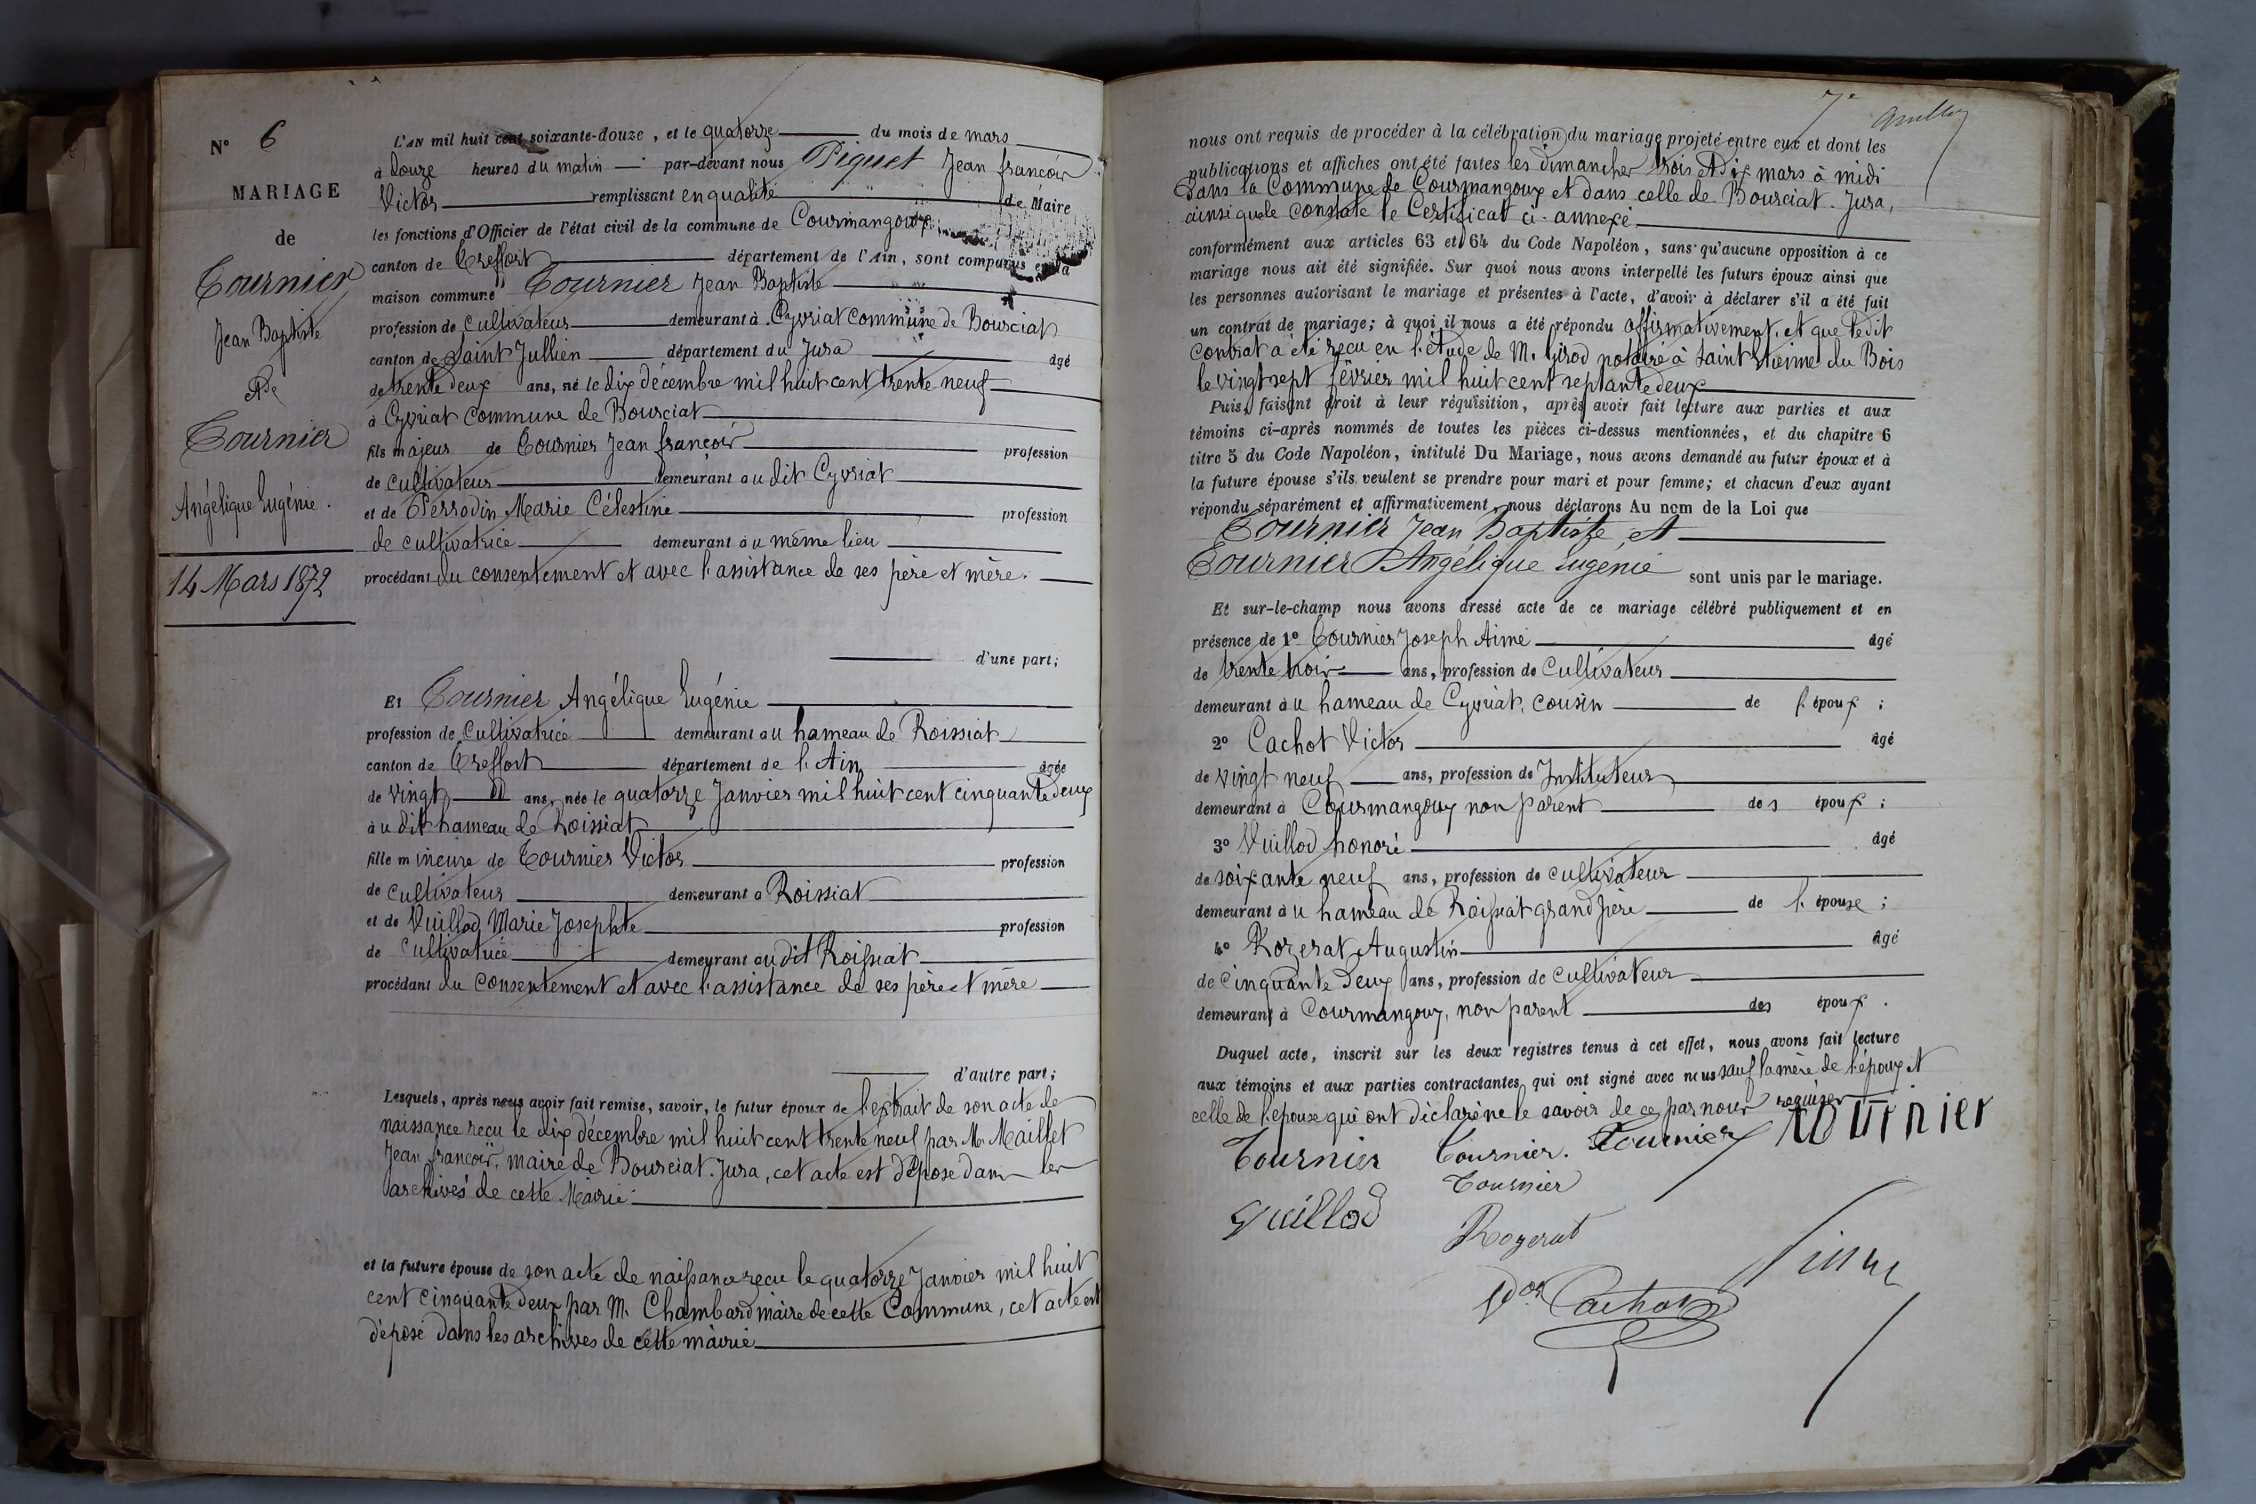 N° 6
MARIAGE
de
Tournier
Jean Baptiste
Et De
Tournier
Angélique Eugénie.
14 Mars 1872
L'AN mil huit cent soixante-douze, et le quatorze du mois de mars
à douze heures du matin par-devant nous Piquet Jean françois
Victor remplissant en qualité de Maire
les fonctions d'Officier de l'état civil de la commune de Courmangoux
canton de Treffort département de l'Ain, sont comparus en la
maison commune Tournier Jean Baptiste
profession de cultivateur demeurant à Cyvriat commune de Bourciat
canton de Saint Jullien département du Jura âgé
de trente deux ans, né le dix décembre mil huit cent trente neuf
à Cyvriat commune de Bourciat
fils majeur de Tournier Jean françois profession
de cultivateur demeurant au dit Cyvriat
et de Perrodin Marie Célestine profession
de cultivatrice demeurant au même lieu
procédant du consentement et avec l'assistance de ses père et mère.
d'une part;
Et Tournier Angélique Eugénie
profession de cultivatrice demeurant au hameau de Roissiat
canton de Treffort département de l'Ain âgée
de vingt ans, née le quatorze Janvier mil huit cent cinquante deux
au dit hameau de Roissiat
fille mineure de Tournier Victor profession
de cultivateur demeurant à Roissiat
et de Vuillod Marie Josephte profession
de cultivatrice demeurant au dit Roissiat
procédant du consentement et avec l'assistance de ses père et mère
d'autre part;
Lesquels, après nous avoir fait remise, savoir, le futur époux de l'extrait de son acte de
naissance reçu le dix décembre mil huit cent trente neuf par Mr Maillet
Jean françois, maire de Bourciat. Jura, cet acte est déposé dans les
archives de cette Mairie.
et la future épouse de son acte de naissance reçu le quatorze Janvier mil huit
cent cinquante deux par M. Chambard maire de cette Commune, cet acte est
déposé dans les archives de cette mairie
7e
nous ont requis de procéder à la célébration du mariage projeté entre eux et dont les
publications et affiches ont été faites les dimanches trois et dix mars à midi
dans la Commune de Courmangoux et dans celle de Bourciat. Jura,
ainsi que le constate le Certificat ci-annexé
conformément aux articles 63 et 64 du Code Napoléon, sans qu'aucune opposition à ce
mariage nous ait été signifiée. Sur quoi nous avons interpellé les futurs époux ainsi que
les personnes autorisant le mariage et présentes à l'acte, d'avoir à déclarer s'il a été fait
un contrat de mariage; à quoi il nous a été répondu affirmativement, et que ledit
contrat a été reçu en l'étude de M. Girod notaire à Saint Etienne du Bois
le vingt sept février mil huit cent septante deux
Puis, faisant droit à leur réquisition, après avoir fait lecture aux parties et aux
témoins ci-après nommés de toutes les pièces ci-dessus mentionnées, et du chapitre 6
titre 5 du Code Napoléon, intitulé Du Mariage, nous avons demandé au futur époux et à
la future épouse s'ils veulent se prendre pour mari et pour femme; et chacun d'eux ayant
répondu séparément et affirmativement, nous déclarons Au nom de la Loi que
Tournier Jean Baptiste, et
Tournier Angélique Eugénie sont unis par le mariage.
Et sur-le-champ nous avons dressé acte de ce mariage célébré publiquement et en
présence de 1° Tournier Joseph Aimé âgé
de trente trois ans, profession de Cultivateur
demeurant au hameau de Cyvriat, cousin de l'époux ;
2° Cachot Victor âgé
de vingt neuf ans, profession de Instituteur
demeurant à Courmangoux non parent des époux ;
3° Vuillod honoré âgé
de soixante neuf ans, profession de cultivateur
demeurant au hameau de Roissiat grand père de l'épouse ;
4° Rozerat Augustin âgé
de cinquante deux ans, profession de cultivateur
demeurant à Courmangoux, non parent des époux.
Duquel acte, inscrit sur les deux registres tenus à cet effet, nous avons fait lecture
aux témoins et aux parties contractantes, qui ont signé avec nous sauf la mère de l'époux et
celle de l'épouse qui ont déclaré ne le savoir de ce par nous requises
Tournier Tournier. Tournier Tournier
Tournier
Vuillod
Rozerat
Vor Cachot